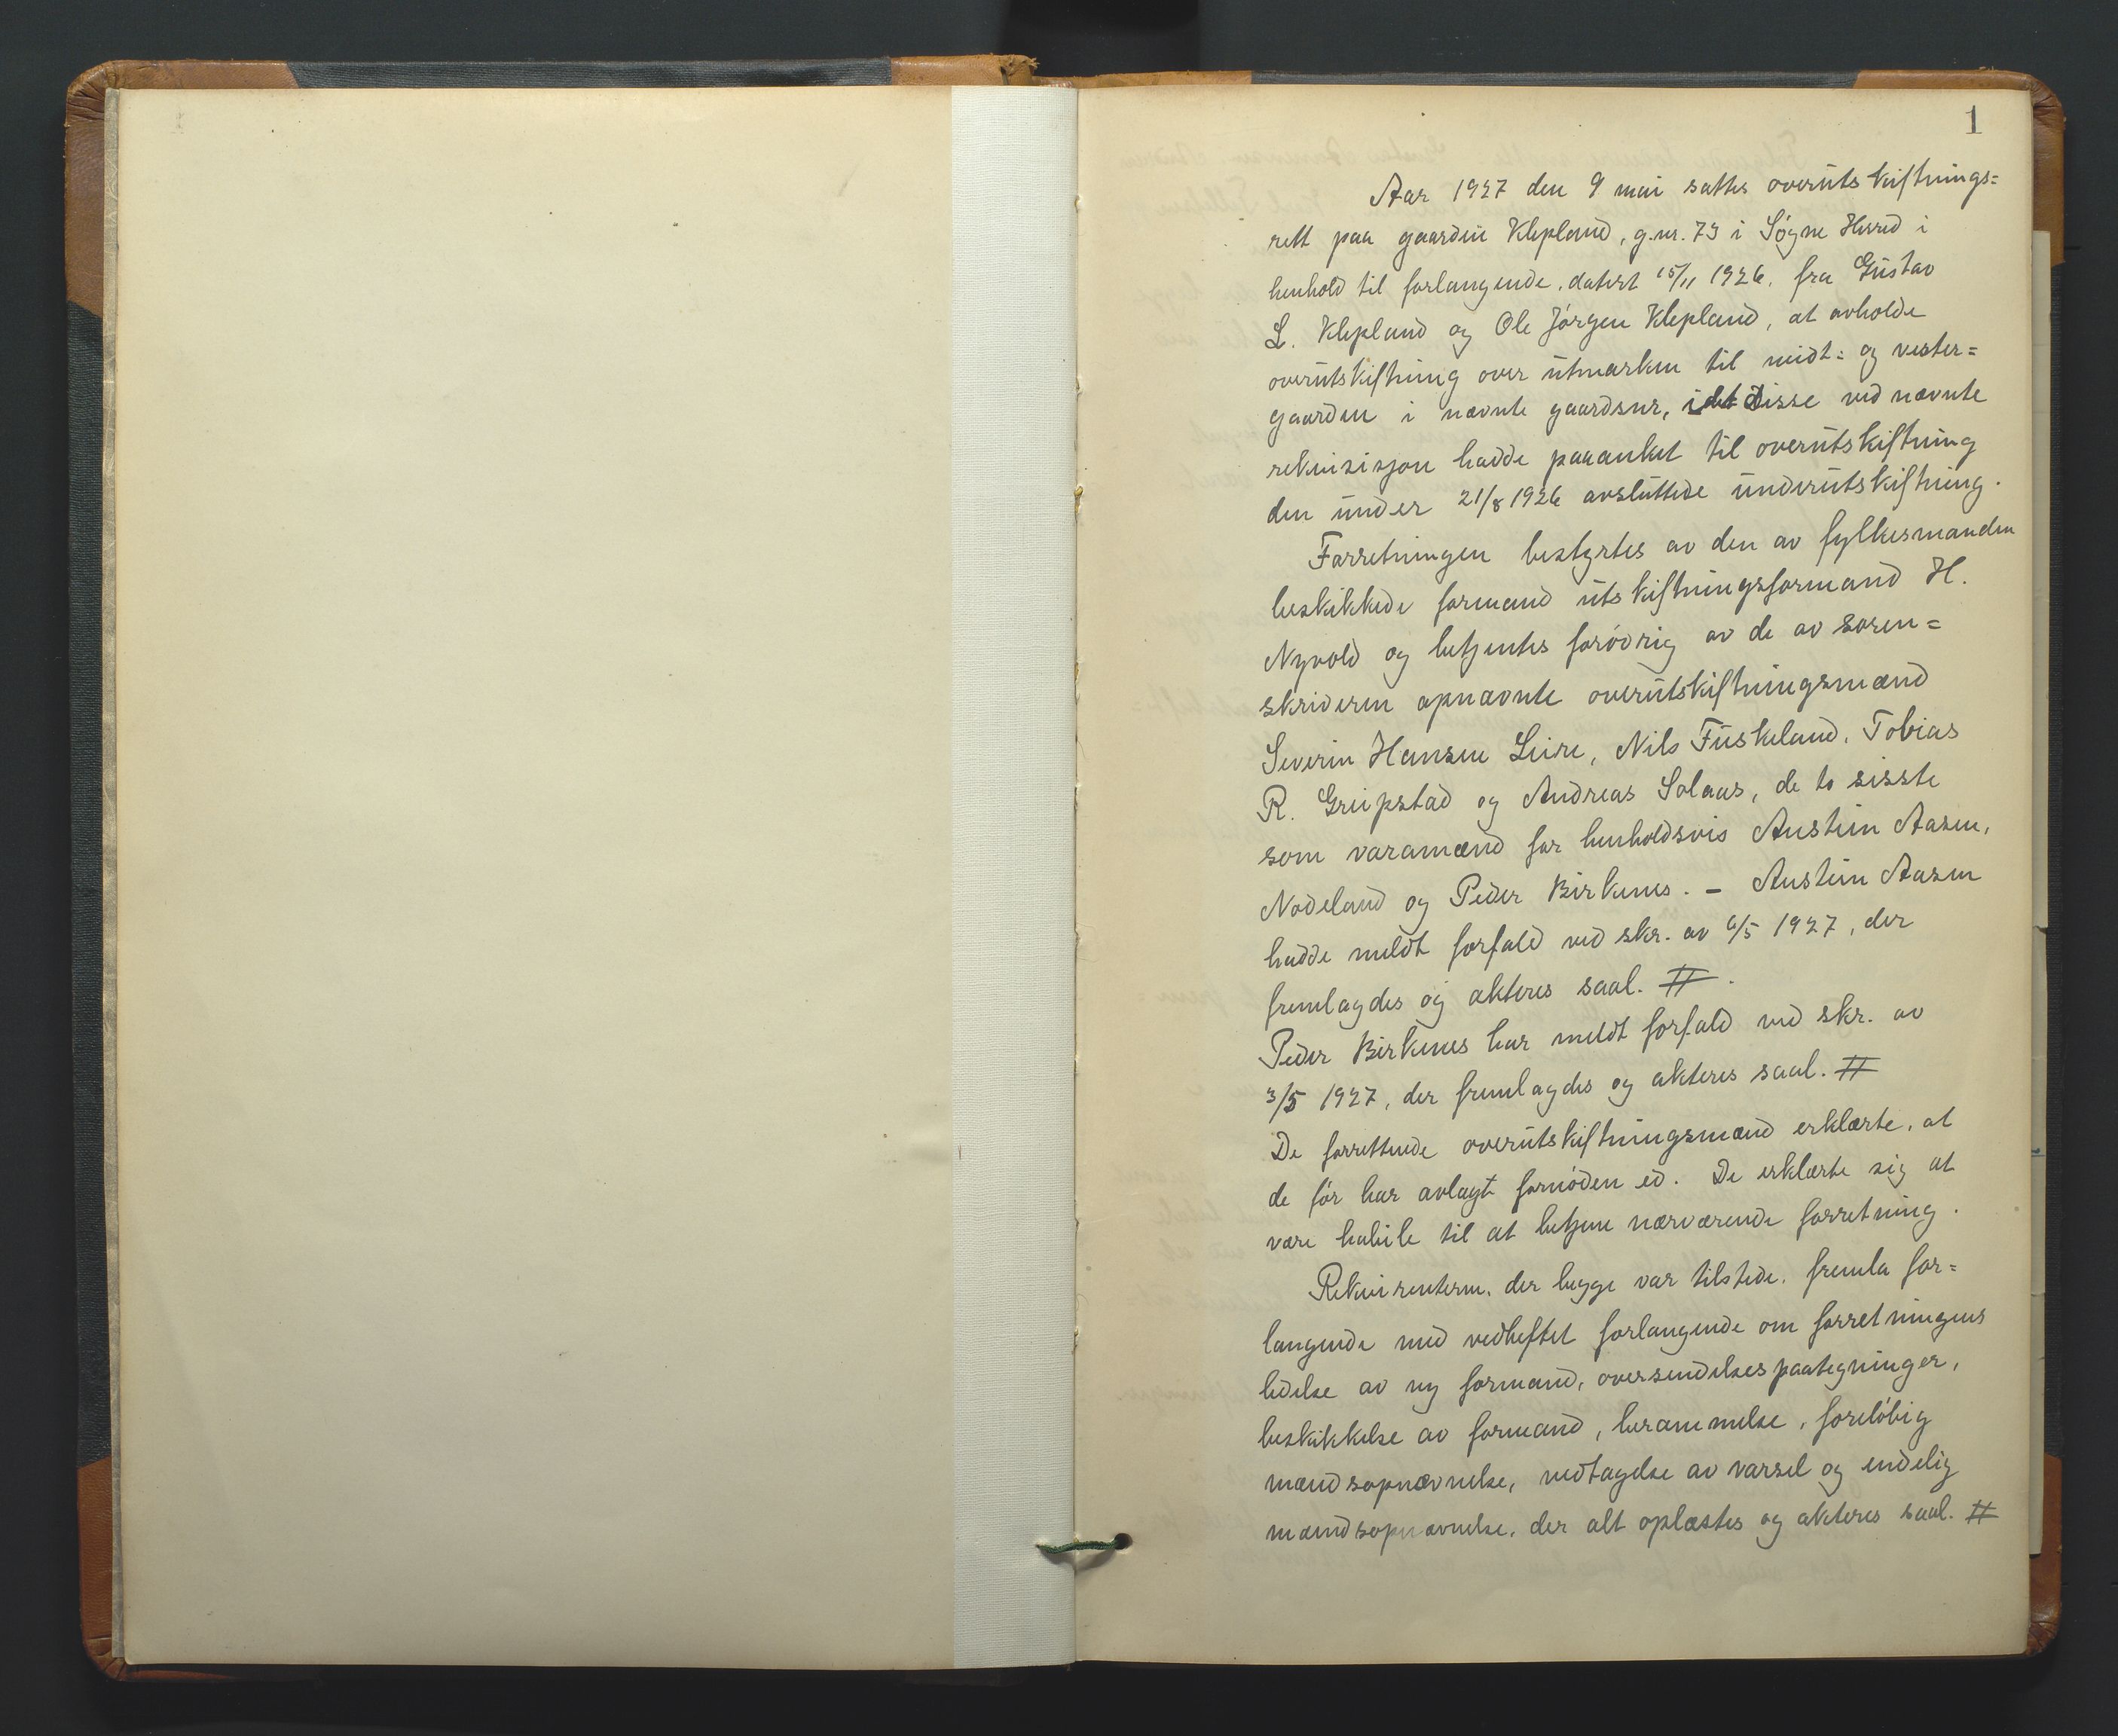 1
Aar 1927 den 9 mai sattes overutskiftnings=
rett paa gaarden Klepland, g.nr. 73 i Søgne Herred i
henhold til forlangende, datert 15/11 1926, fra Gustav
L. Klepland og Ole Jørgen Klepland, at avholde
overutskiftning over utmarken til midt= og vester=
gaarden i nævnte gaardsnr, idet disse ved nævnte
rekvisisjon hadde paaanket til overutskiftning
den under 21/8 1926 avsluttede underutskiftning.
Forretningen bestyrtes av den av fylkesmanden
beskikkede formand utskiftningsformand H.
Nyvold og betjentes forøvrig av de av soren=
skriveren opnævnte overutskiftningsmænd
Severin Hansen Leire, Nils Fuskeland, Tobias
R. Greipstad og Andreas Solaas, de to sisste
som varamænd for henholdsvis Austein Aasen,
Nodeland og Peder Birkenes. - Austein Aasen
hadde meldt forfald ved skr. av 6/5 1927, der
fremlagdes og akteres saal. #.
Peder Birkenes har meldt forfald ved skr. av
3/5 1927, der fremlagdes og akteres saal. #
De forrettende overutskiftningsmænd erklærte, at
de før har avlagt fornøden ed. De erklærte sig at
være habile til at betjene nærværende forretning.
Rekvirenterne, der begge var tilstede, fremla for=
langende med vedheftet forlangende om forretningens
ledelse av ny formand, oversendelsespaategninger,
beskikkelse av formand, berammelse, foreløbig
mændsopnævnelse, vedtagelse av varsel og endelig
mændsopnævnelse, der alt oplæstes og akteres saal. #